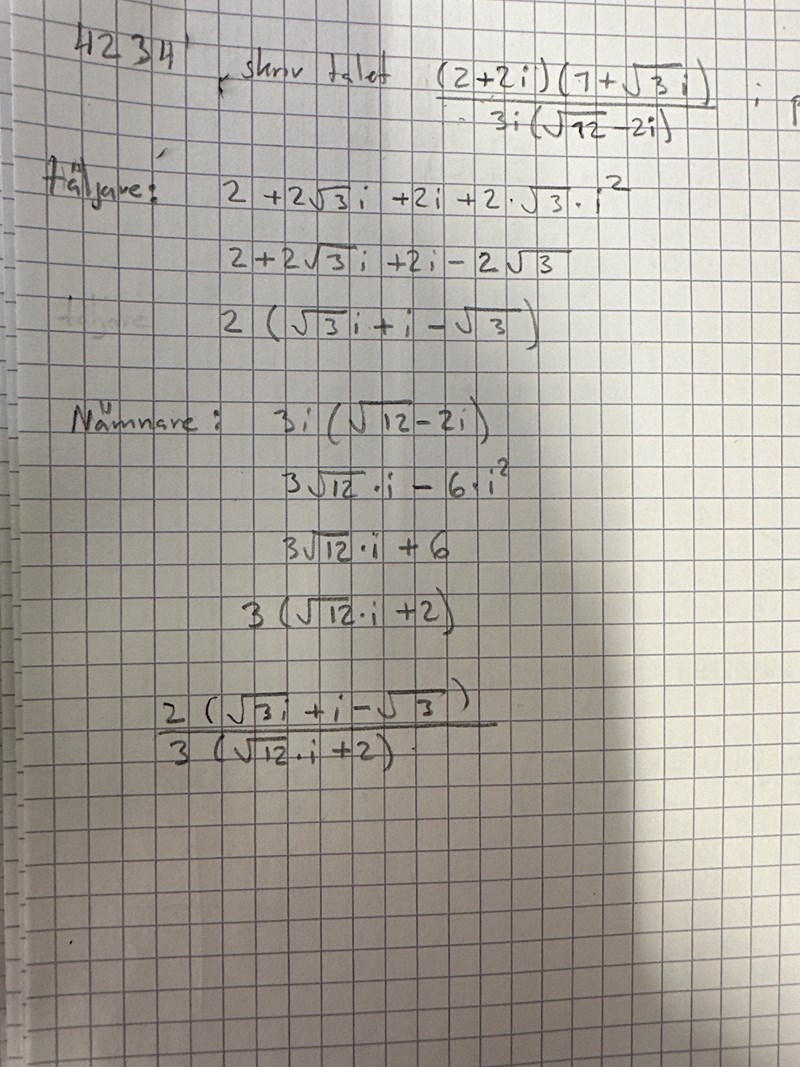 4234 skriv talet (2+2i)(1+√3i) / 3i(√12-2i) i p
täljare: 2 + 2√3i + 2i + 2·√3·i²
2+2√3i +2i - 2√3
2 (√3i + i - √3)
Nämnare: 3i (√12 - 2i)
3√12·i - 6·i²
3√12·i + 6
3 (√12·i + 2)
2 (√3i + i - √3)
3 (√12·i + 2)